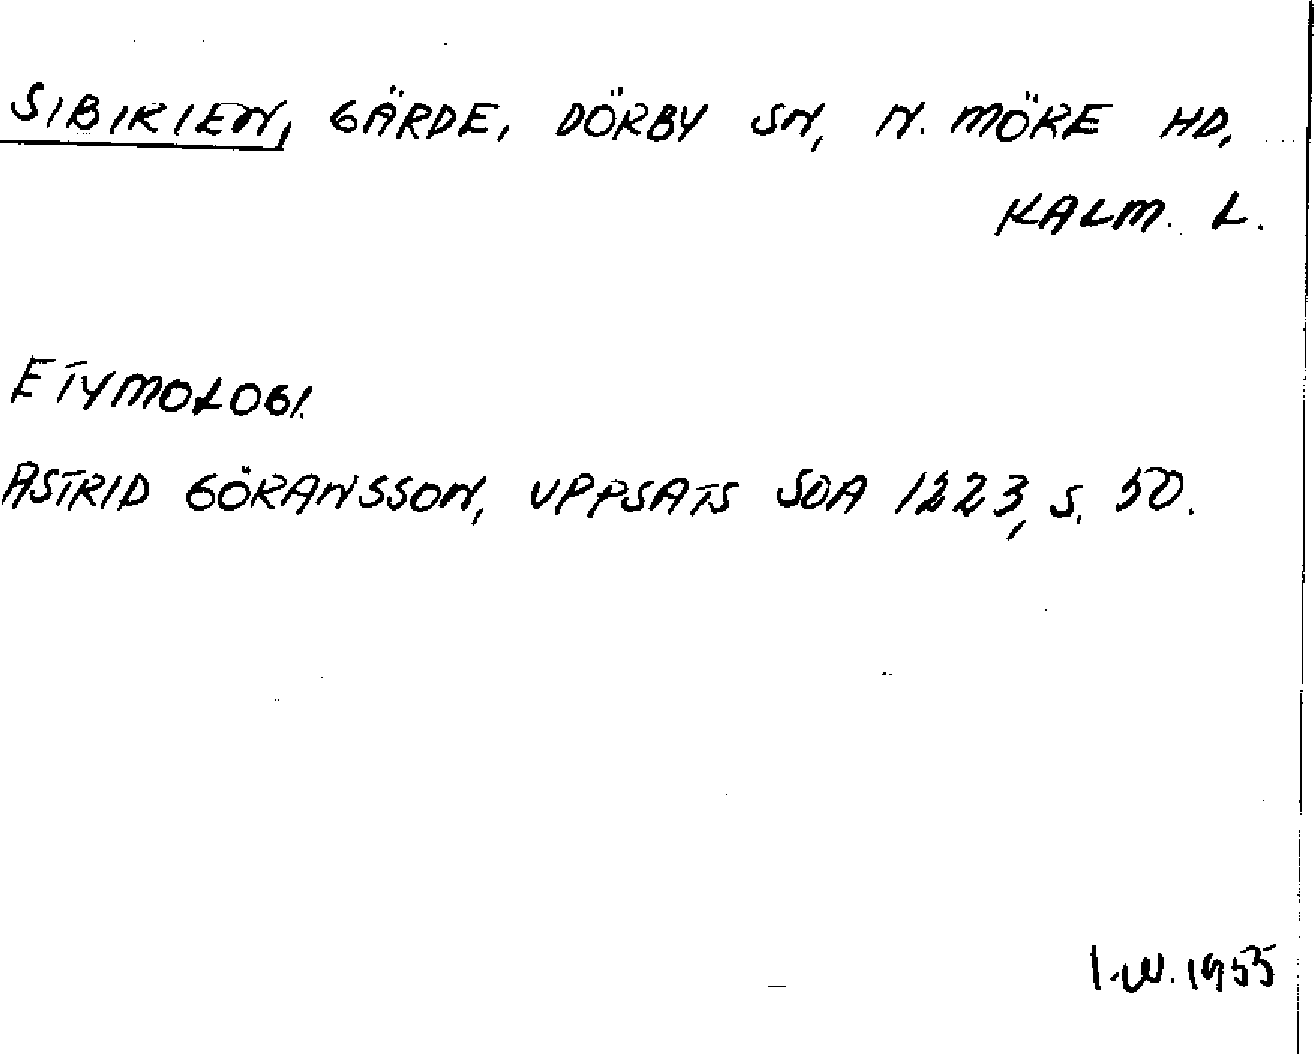 SIBIRIEN, GÄRDE, DÖRBY SN, N. MÖRE HD,
KALM. L.
ETYMOLOGI.
ASTRID GÖRANSSON, UPPSATS SOA 1223, S. 50.
I.W. 1955